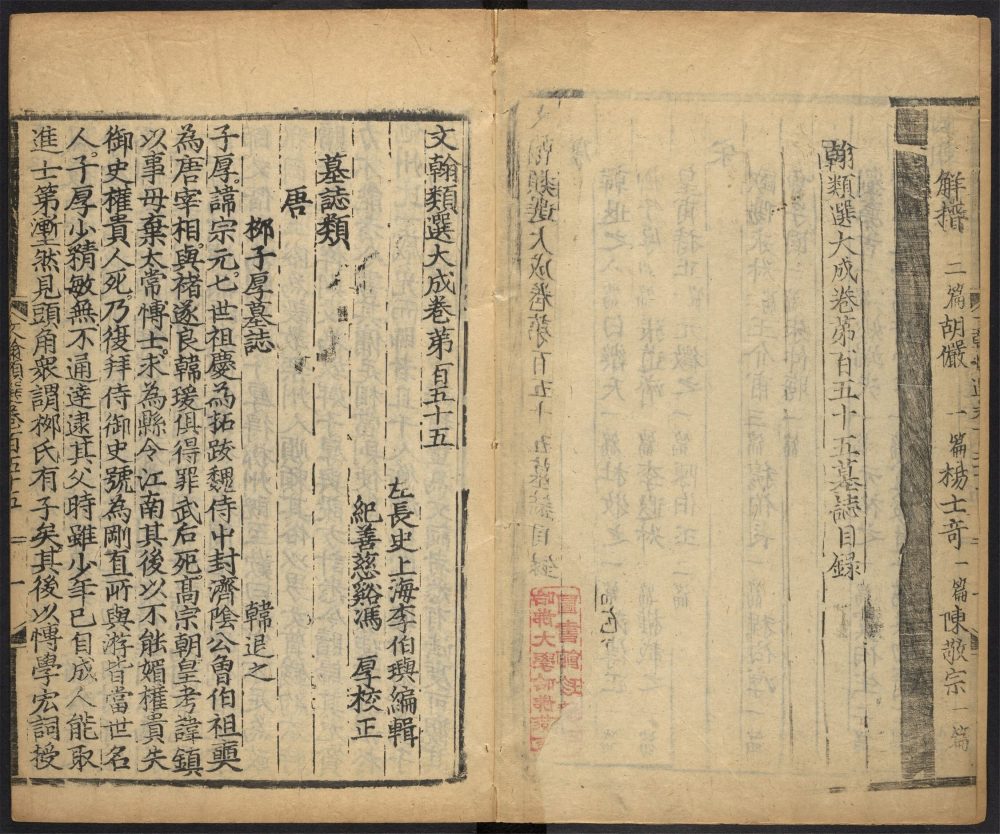 解搢 二篇 胡儼 一篇 楊士奇 一篇 陳敬宗 一篇
翰類選大成卷第百五十五墓誌目録
文翰類選大成卷第百五十五
左長史上海李伯璵編輯
紀善慈谿馮 厚校正
墓誌類
唐
柳子厚墓誌 韓退之
子厚諱宗元七世祖慶為拓跋魏侍中封濟隂公曾伯祖奭
為唐宰相與褚遂良韓瑗俱得罪武后死高宗朝皇考諱鎮
以事母棄太常博士求為縣令江南其後以不能媚權貴失
御史權貴人死乃復拜侍御史號為剛直所與游皆當世名
人子厚少精敏無不通達逮其父時雖少年已自成人能取
進士第嶄然見頭角衆謂柳氏有子矣其後以博學宏詞授
文翰類選卷一百五十五 一
圖書館珍
哈佛大學哈佛燕京